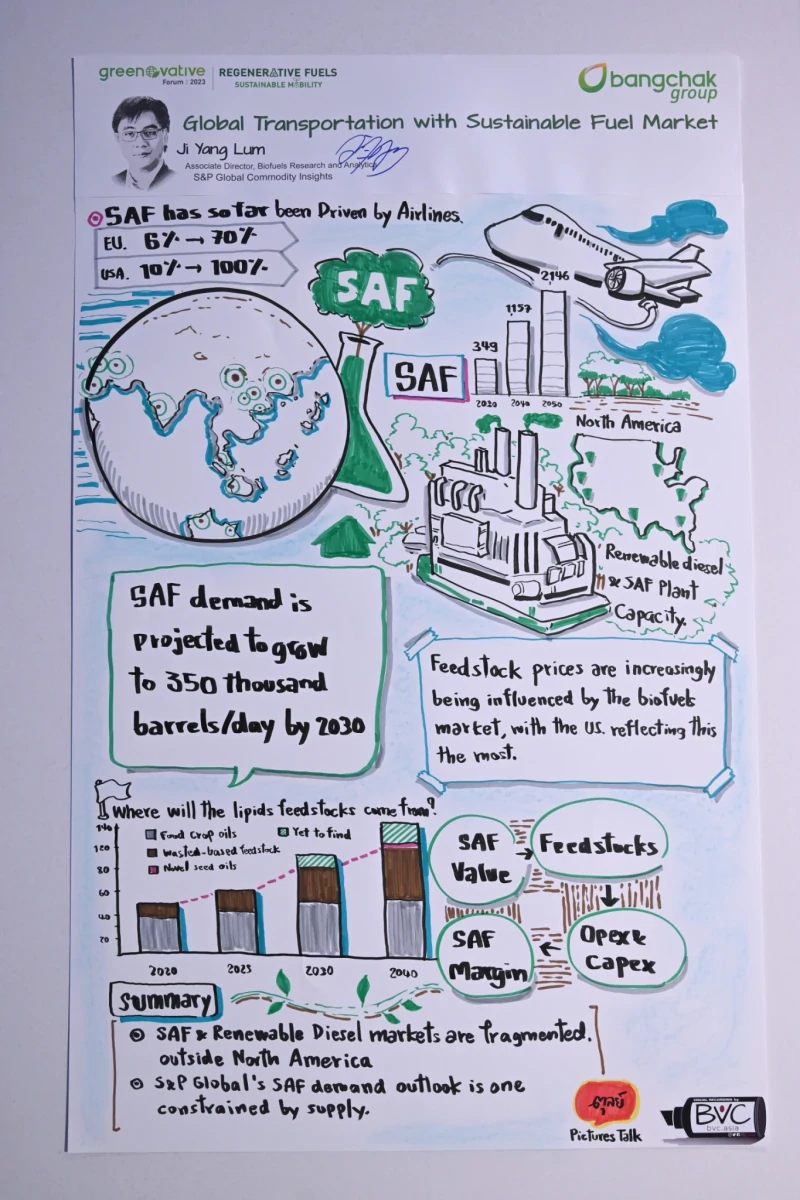 greenovative
Forum | 2023
REGENERATIVE FUELS
SUSTAINABLE MOBILITY
bangchak
group
Global Transportation with Sustainable Fuel Market
Ji Yang Lum
Associate Director, Biofuels Research and Analytics
S&P Global Commodity Insights
SAF has so far been Driven by Airlines.
EU. 6% → 70%
USA. 10% → 100%
SAF
SAF
349
1157
2146
2020 2040 2050
North America
Renewable diesel
& SAF Plant
Capacity.
SAF demand is
projected to grow
to 350 thousand
barrels/day by 2030
Feedstock prices are increasingly
being influenced by the biofuels
market, with the US. reflecting this
the most.
Where will the lipids feedstocks come from?
Food Crop oils
Yet to find
Wasted-based feedstock
Novel seed oils
140
120
80
60
40
20
2020 2025 2030 2040
SAF
Value
→
Feedstocks
↓
Opex &
Capex
←
SAF
Margin
Summary
SAF & Renewable Diesel markets are fragmented.
outside North America
S&P Global's SAF demand outlook is one
constrained by supply.
ตุลย์
Pictures Talk
BVC
bvc.asia